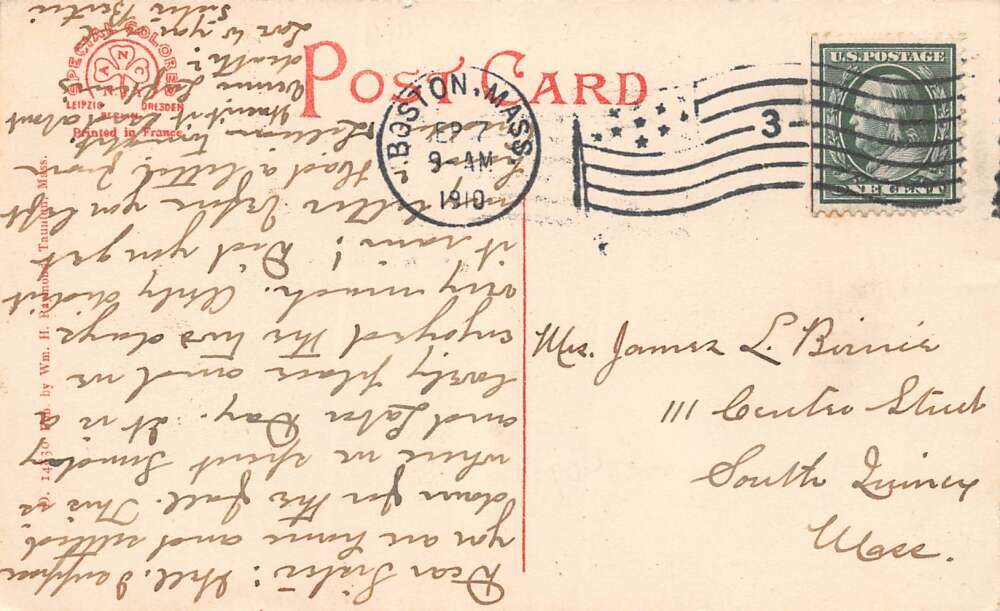 SPECIAL COLORED
A. N. C.
N.Y.
LEIPZIG DRESDEN
BERLIN
Printed in France
POST CARD
BOSTON, MASS.
SEP 7
9-AM
1910
3
U.S. POSTAGE
ONE CENT
Pub. by Wm. H. Raymond, Taunton, Mass.
Mrs. James L. Birnie
111 Centre Street
South Quincy
Mass.
Dear Sister: Well, I suppose
you are home and settled
down for the fall. This is
where we spent Sunday
and Labor Day. It is a
lovely place and we
enjoyed the two days
very much. Only didn't
it rain! Did you get
letter before you left
Had a letter from
Lillian
Wasn't it sad about
death?
Love to you
Sister Bertie